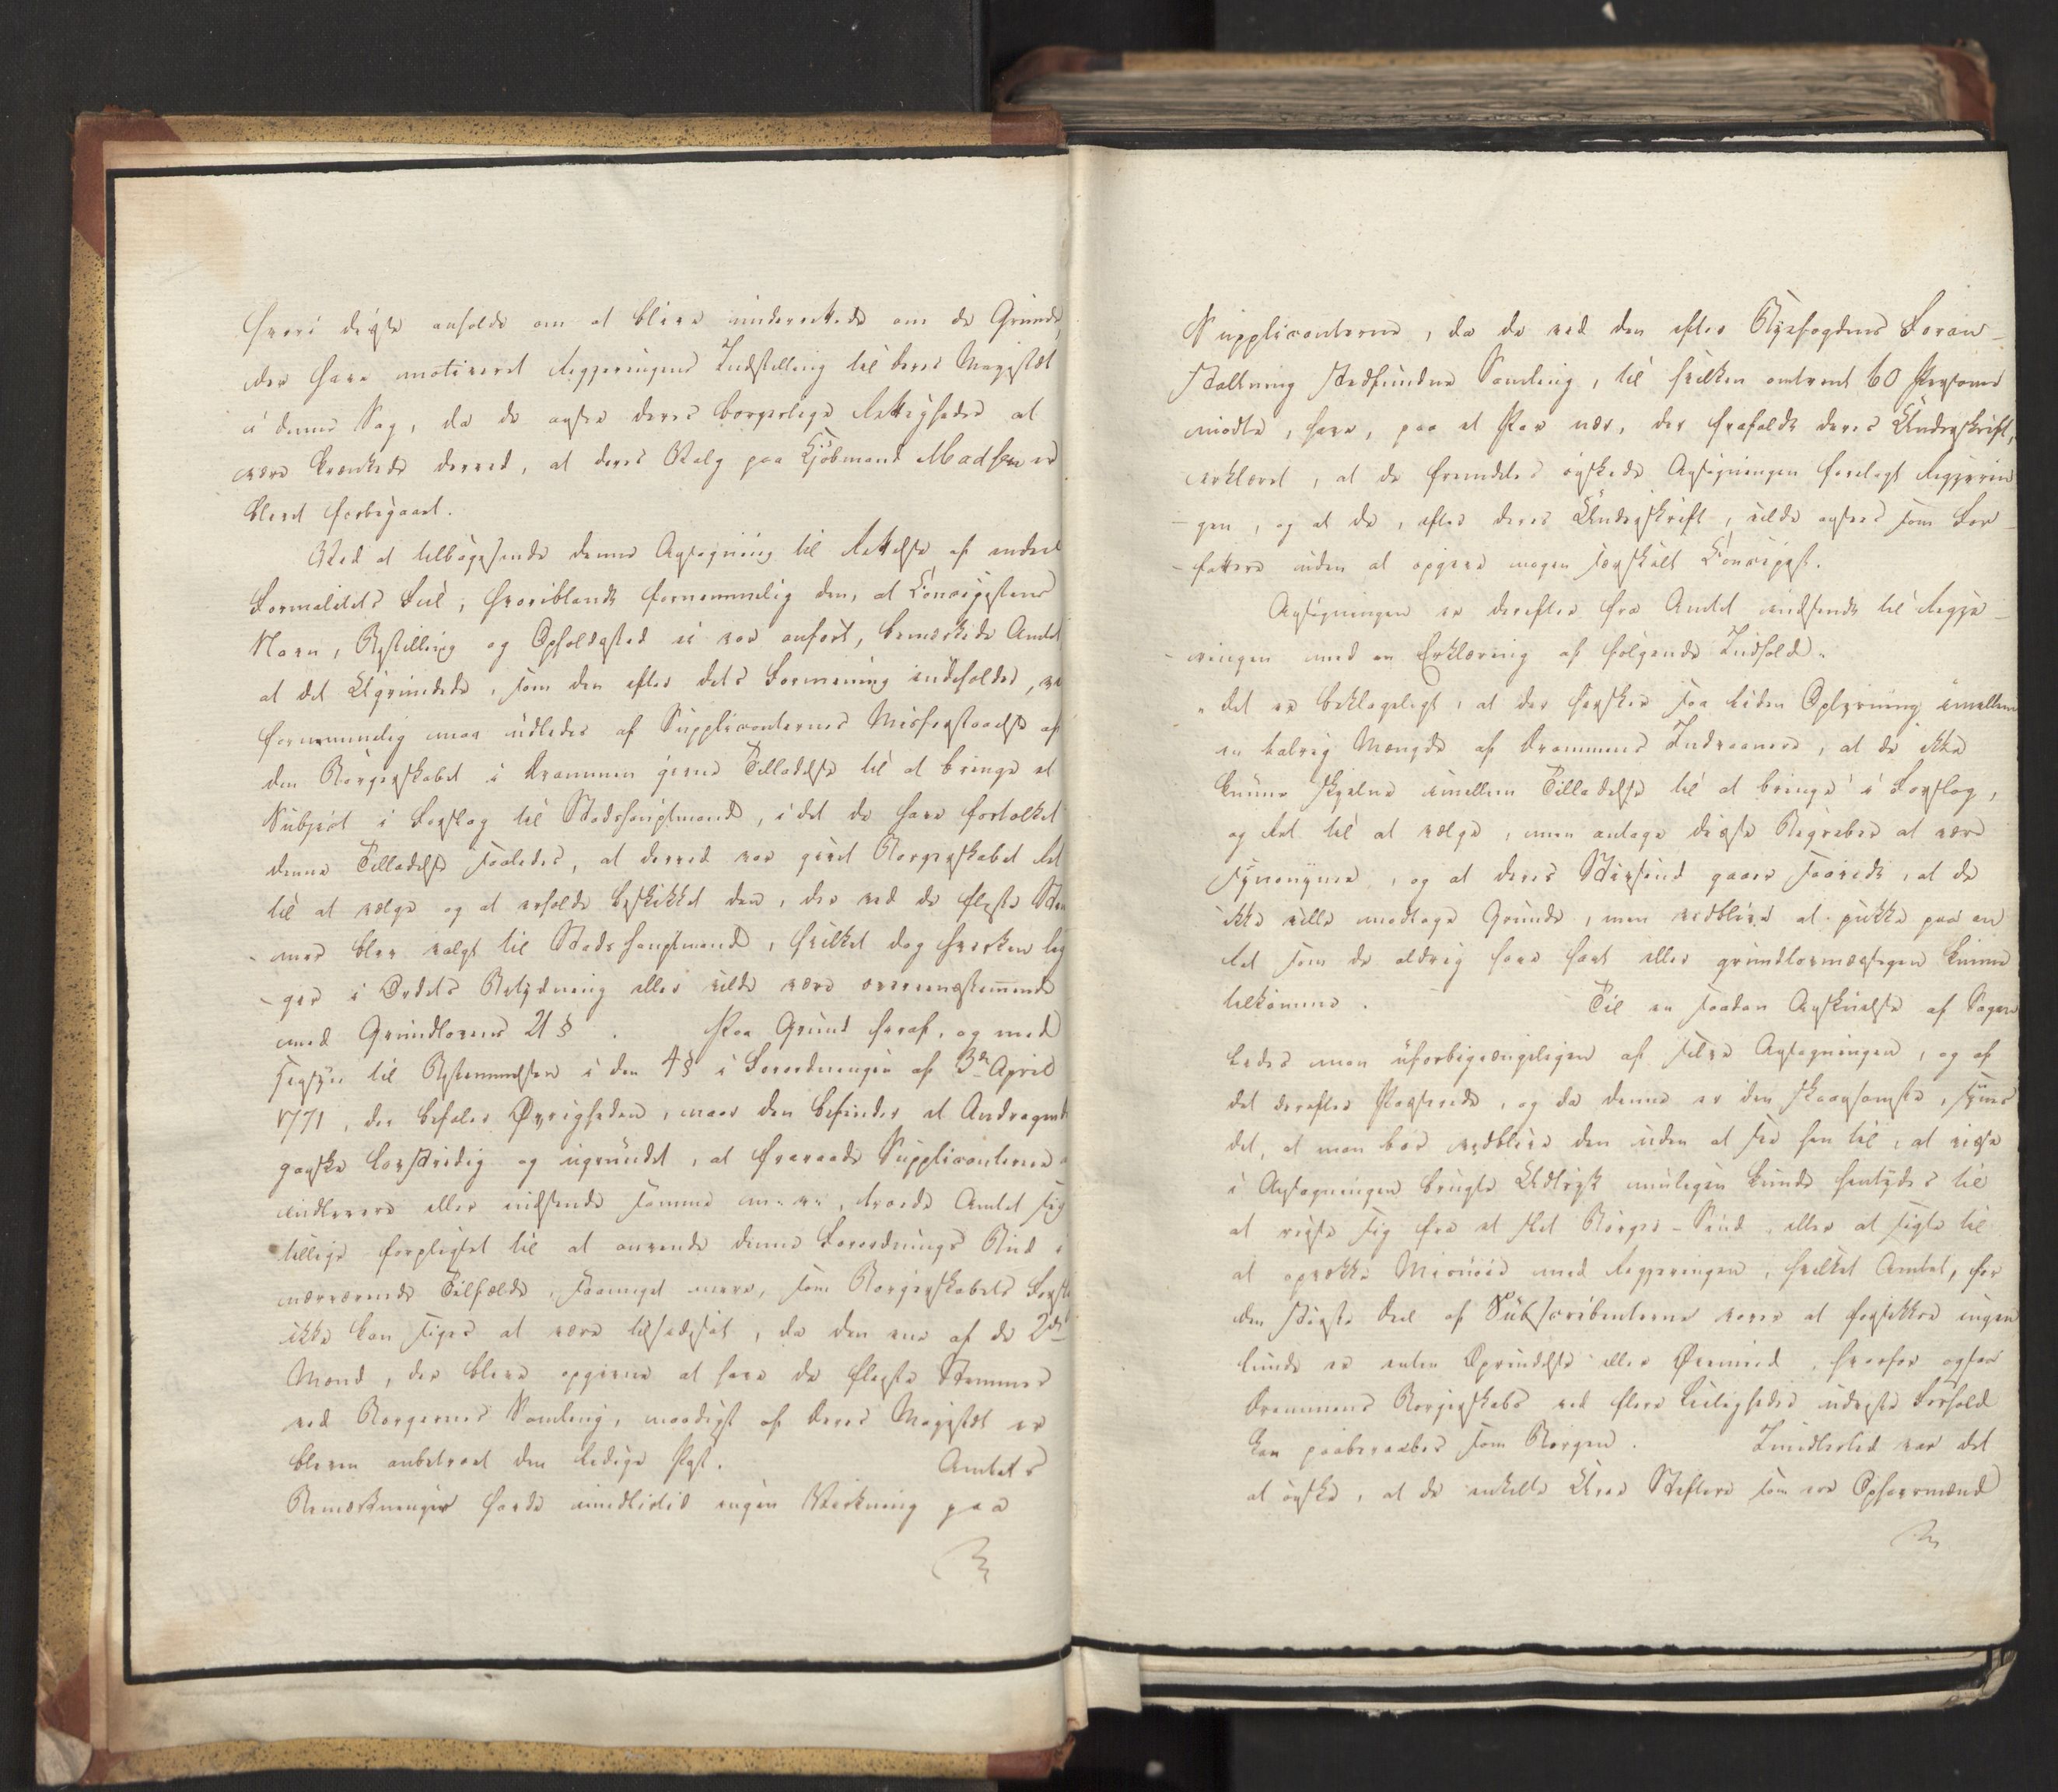 hvori disse anholde om at blive underrettede om de Grunde,
der have motiveret Regjeringens Indstilling til Deres Majestæt
i denne Sag, da de ansee deres borgerlige Rettigheder at
være krænkede derved, at deres Valg paa Kjöbmand Madsen er
blevet forbigaaet.
Ved at tilbagesende denne Ansøgning til Rettelse af endeel
Formalitets Feil, hvoriblandt fornemmelig den, at Concipistens
Navn, Bestilling og Opholdssted ei var anført, bemærkede Amtet
at det Ugrundede, som den efter dets Formening indeholder,
fornemmelig maa udledes af Supplicanternes Misforstaaelse af
den Borgerskabet i Drammen givne Tilladelse til at bringe et
Subject i Forslag til Stadshauptmand, i det de have fortolket
denne Tilladelse saaledes, at derved var givet Borgerskabet Ret
til at vælge og at erholde beskikket den, der ved de fleste Stem
- mer blev valgt til Stadshauptmand, hvilket dog hverken lig
- ger i Ordets Betydning eller vilde være overeensstemmende
med Grundlovens 21 §. Paa Grund heraf, og med
Hensyn til Bestemmelsen i den 4 § i Forordningen af 3die April
1771, der befaler Øvrigheden, naar den befinder et Andragende
ganske lovstridig og ugrundet, at fraraade Supplicanterne
indlevere eller indsende samme m: v:, troede Amtet sig
tillige forpligtet til at anvende denne Forordnings Bud i
nærværende Tilfælde, saameget mere, som Borgerskabets Forslag
ikke kan siges at være tilsidesat, da den ene af de 2de
Mænd, der bleve opgivne at have de fleste Stemmer
ved Borgernes Samling, naadigst af Deres Majestæt er
bleven anbetroet den ledige Post. Amtets
Bemærkninger havde imidlertid ingen Virkning paa
Supplicanterne, da de ved den efter Byefogdens Foran-
staltning stedfundne Samling, til hvilken omtrent 60 Personer
mødte, have, paa et Par nær, der frafaldt deres Underskrift,
erklæret, at de fremdeles ønskede Ansøgningen forelagt Regjerin
- gen, og at de, efter deres Underskrift, vilde ansees som For-
- fattere uden at opgive nogen særskilt Concipist.
Ansøgningen er derefter fra Amtet indsendt til Regje-
- ringen med en Erklæring af følgende Indhold.
„det er beklageligt, at der hersker saa liden Oplysning imellem
en talrig Mængde af Drammens Indvaanere, at de ikke
kunne skjelne imellem Tilladelse til at bringe i Forslag,
og Ret til at vælge, men antage disse Begreber at være
synonyme, og at deres Stivsind gaaer saavidt, at de
ikke ville modtage Grunde, men vedblive at pukke paa en
Ret som de aldrig have havt eller grundlovmæssigen kunne
tilkomme. Til en saadan Anskuelse af Sagen
ledes man uforbigængeligen af selve Ansøgningen, og af
det derefter Passerede, og da denne er den skaansomste, synes
det, at man bør vedblive den uden at see hen til, at visse
i Ansøgningen brugte Udtryk muligen kunde hentyde til
at reise sig fra et slet Borger-Sind, eller at sigte til
at opvække Misnøie med Regjeringen, hvilket Amtet, for
den største Deel af Subscribenterne vover at forsikkre ingen
lunde er enten Oprindelse eller Øiemed, hvorfor ogsaa
Drammens Borgerskabs ved flere Leiligheder udviste Forhold
kan paaberaabes som Borgen. Imidlertid var det
at ønske, at de enkelte Uroe Stiftere som ere Ophavsmænd